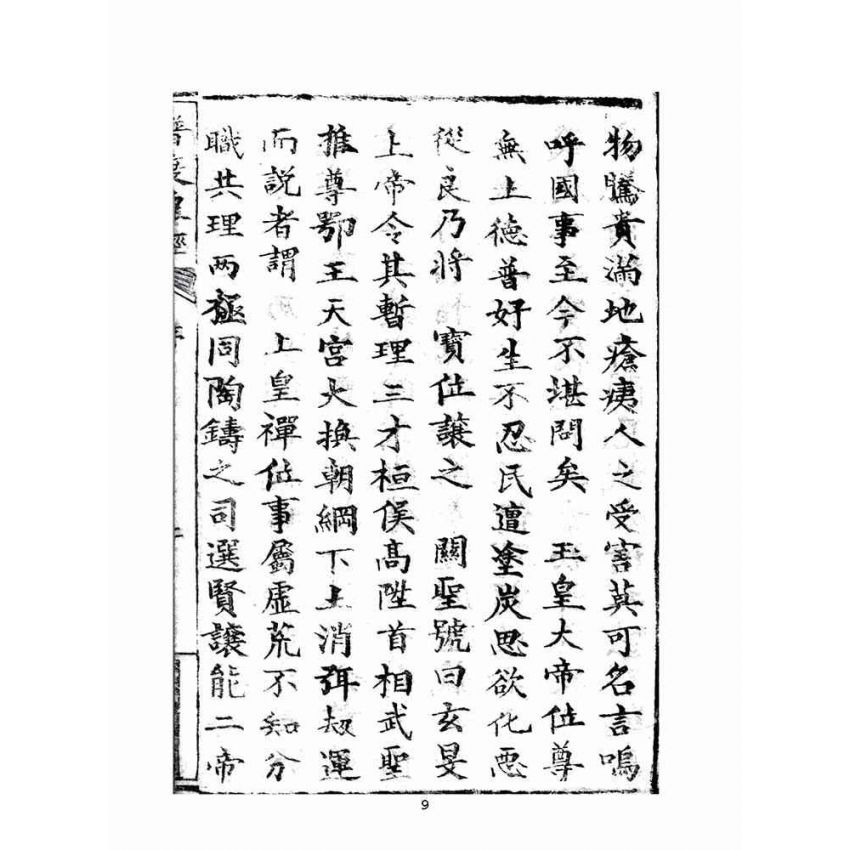 物騰貴滿地瘡痍人之受害莫可名言嗚
呼國事至今不堪問矣 玉皇大帝位尊
無上德普好生不忍民遭塗炭思欲化惡
從良乃將 寶位讓之 關聖號曰玄旻
上帝令其暫理三才桓侯高陞首相武聖
推尊鄂王天宮大換朝綱下土消弭刼運
而説者謂 上皇禪位事屬虛荒不知分
職共理兩極同陶鑄之司選賢讓能二帝
皇經
9